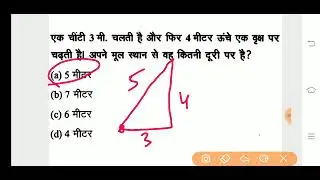 एक चींटी 3 मी. चलती है और फिर 4 मीटर ऊंचे एक वृक्ष पर
चढ़ती है। अपने मूल स्थान से वह कितनी दूरी पर है?
(a) 5 मीटर
(b) 7 मीटर
(c) 6 मीटर
(d) 4 मीटर
5
4
3